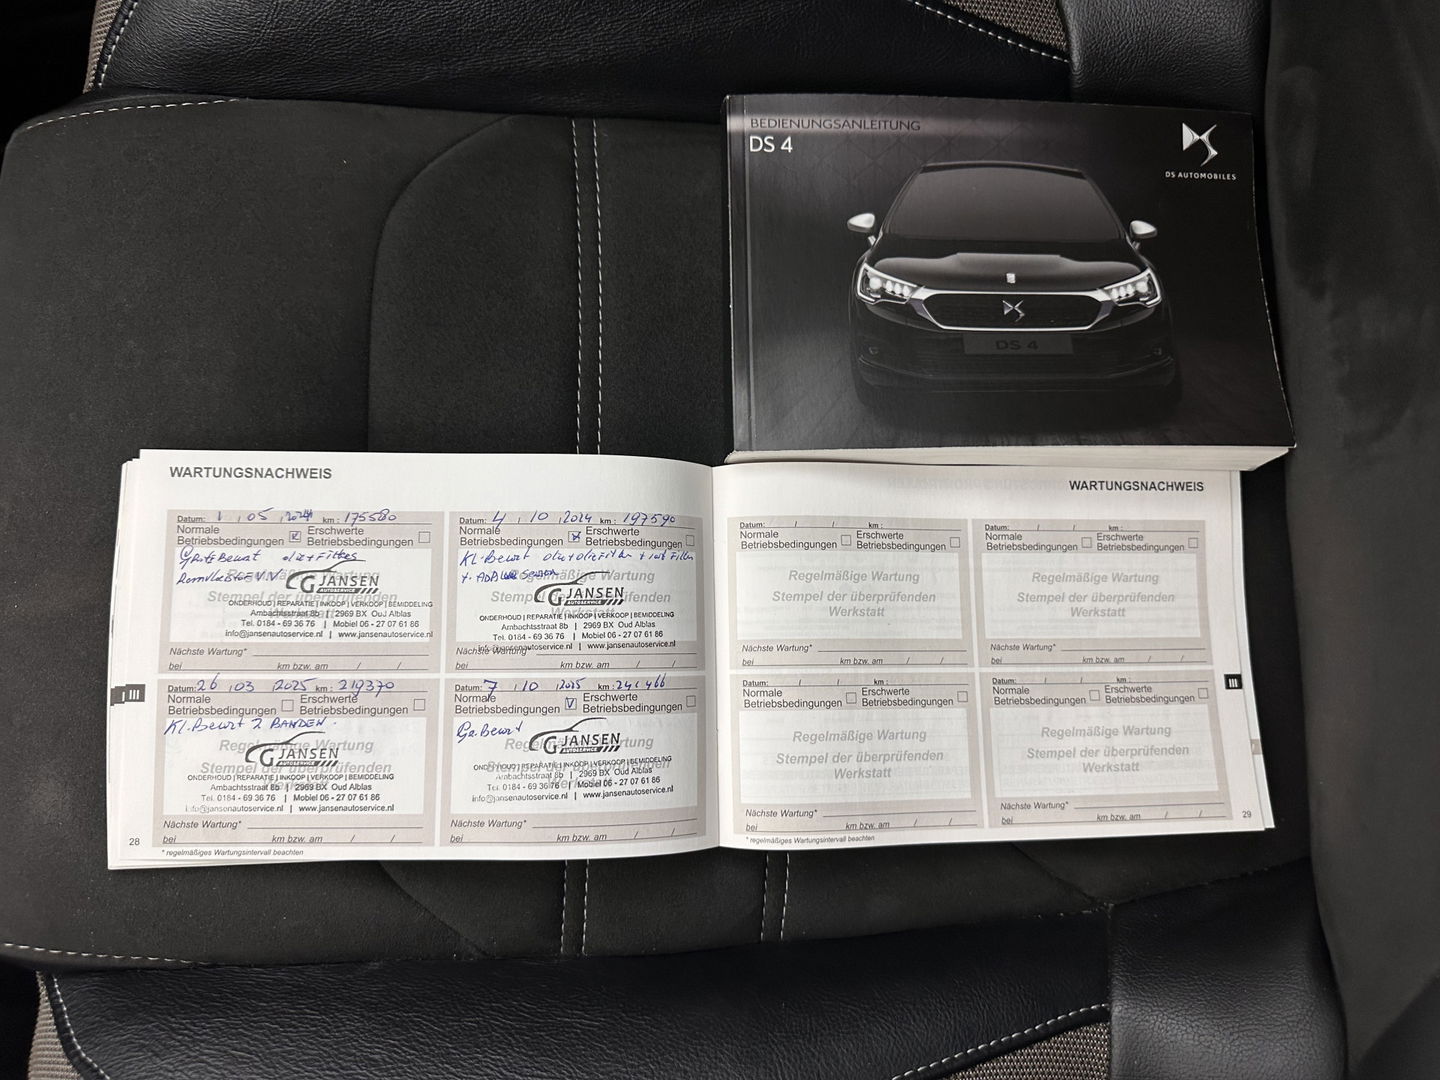 BEDIENUNGSANLEITUNG
DS 4
DS AUTOMOBILES
DS 4
WARTUNGSNACHWEIS
Datum: 1 , 05 , 2024 km : 175580
Normale Betriebsbedingungen
Erschwerte Betriebsbedingungen
olie + Filters
Regelmäßige Wartung
Stempel der überprüfenden
G JANSEN
AUTOSERVICE
ONDERHOUD | REPARATIE | INKOOP | VERKOOP | BEMIDDELING
Ambachtsstraat 8b | 2969 BX Oud Alblas
Tel. 0184 - 69 36 76 | Mobiel 06 - 27 07 61 86
info@jansenautoservice.nl | www.jansenautoservice.nl
Nächste Wartung*
bei km bzw. am / /
Datum: 4 , 10 , 2024 km : 197590
Normale Betriebsbedingungen
Erschwerte Betriebsbedingungen
Kl. Beurt olie + olie Filter +
Regelmäßige Wartung
Stempel der überprüfenden
Werkstatt
G JANSEN
AUTOSERVICE
ONDERHOUD | REPARATIE | INKOOP | VERKOOP | BEMIDDELING
Ambachtsstraat 8b | 2969 BX Oud Alblas
Tel. 0184 - 69 36 76 | Mobiel 06 - 27 07 61 86
info@jansenautoservice.nl | www.jansenautoservice.nl
Nächste Wartung*
bei km bzw. am / /
Datum: 26 , 03 , 2025 km : 219370
Normale Betriebsbedingungen
Erschwerte Betriebsbedingungen
Kl. Beurt 2 BANDEN.
Regelmäßige Wartung
Stempel der überprüfenden
G JANSEN
AUTOSERVICE
ONDERHOUD | REPARATIE | INKOOP | VERKOOP | BEMIDDELING
Ambachtsstraat 8b | 2969 BX Oud Alblas
Tel. 0184 - 69 36 76 | Mobiel 06 - 27 07 61 86
info@jansenautoservice.nl | www.jansenautoservice.nl
Nächste Wartung*
bei km bzw. am / /
Datum: 7 , 10 , 2025 km : 241466
Normale Betriebsbedingungen
Erschwerte Betriebsbedingungen
Beurt
Regelmäßige Wartung
Stempel der überprüfenden
G JANSEN
AUTOSERVICE
ONDERHOUD | REPARATIE | INKOOP | VERKOOP | BEMIDDELING
Ambachtsstraat 8b | 2969 BX Oud Alblas
Tel. 0184 - 69 36 76 | Mobiel 06 - 27 07 61 86
info@jansenautoservice.nl | www.jansenautoservice.nl
Nächste Wartung*
bei km bzw. am / /
III
28
* regelmäßiges Wartungsintervall beachten
WARTUNGSNACHWEIS
Datum: / / km :
Normale Betriebsbedingungen
Erschwerte Betriebsbedingungen
Regelmäßige Wartung
Stempel der überprüfenden
Werkstatt
Nächste Wartung*
bei km bzw. am / /
Datum: / / km :
Normale Betriebsbedingungen
Erschwerte Betriebsbedingungen
Regelmäßige Wartung
Stempel der überprüfenden
Werkstatt
Nächste Wartung*
bei km bzw. am / /
Datum: / / km :
Normale Betriebsbedingungen
Erschwerte Betriebsbedingungen
Regelmäßige Wartung
Stempel der überprüfenden
Werkstatt
Nächste Wartung*
bei km bzw. am / /
Datum: / / km :
Normale Betriebsbedingungen
Erschwerte Betriebsbedingungen
Regelmäßige Wartung
Stempel der überprüfenden
Werkstatt
Nächste Wartung*
bei km bzw. am / /
III
29
* regelmäßiges Wartungsintervall beachten